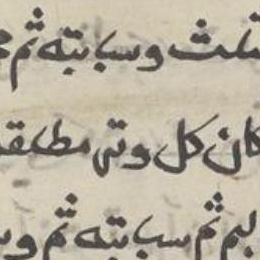 مثلث وسبابته ثم
كان كل وتر مطلقه
بم ثم سبابته ثم و